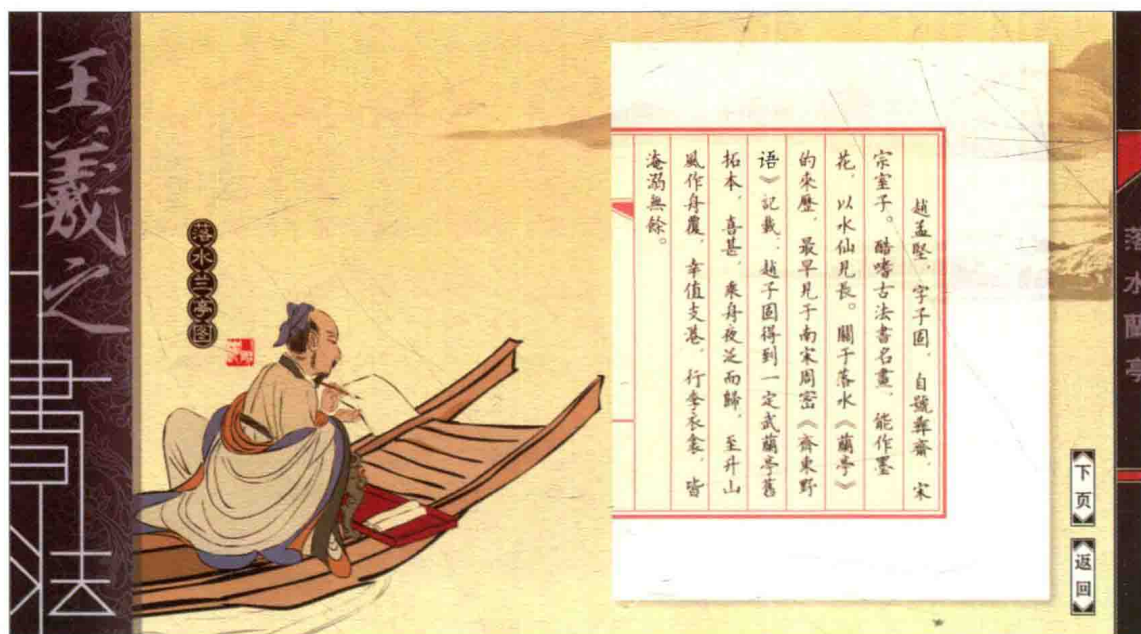 王羲之
書法
落水兰亭图
趙孟堅,字子固,自號彝齋,宋
宗室子。酷嗜古法書名畫,能作墨
花,以水仙見長。關于落水《蘭亭》
的來歷,最早見于南宋周密《齊東野
语》記載,趙子固得到一定武蘭亭舊
拓本,喜甚,乘舟夜泛而歸,至升山
風作舟覆,幸值支港,行李衣衾,皆
淹溺無餘。
落水蘭亭
下页
返回